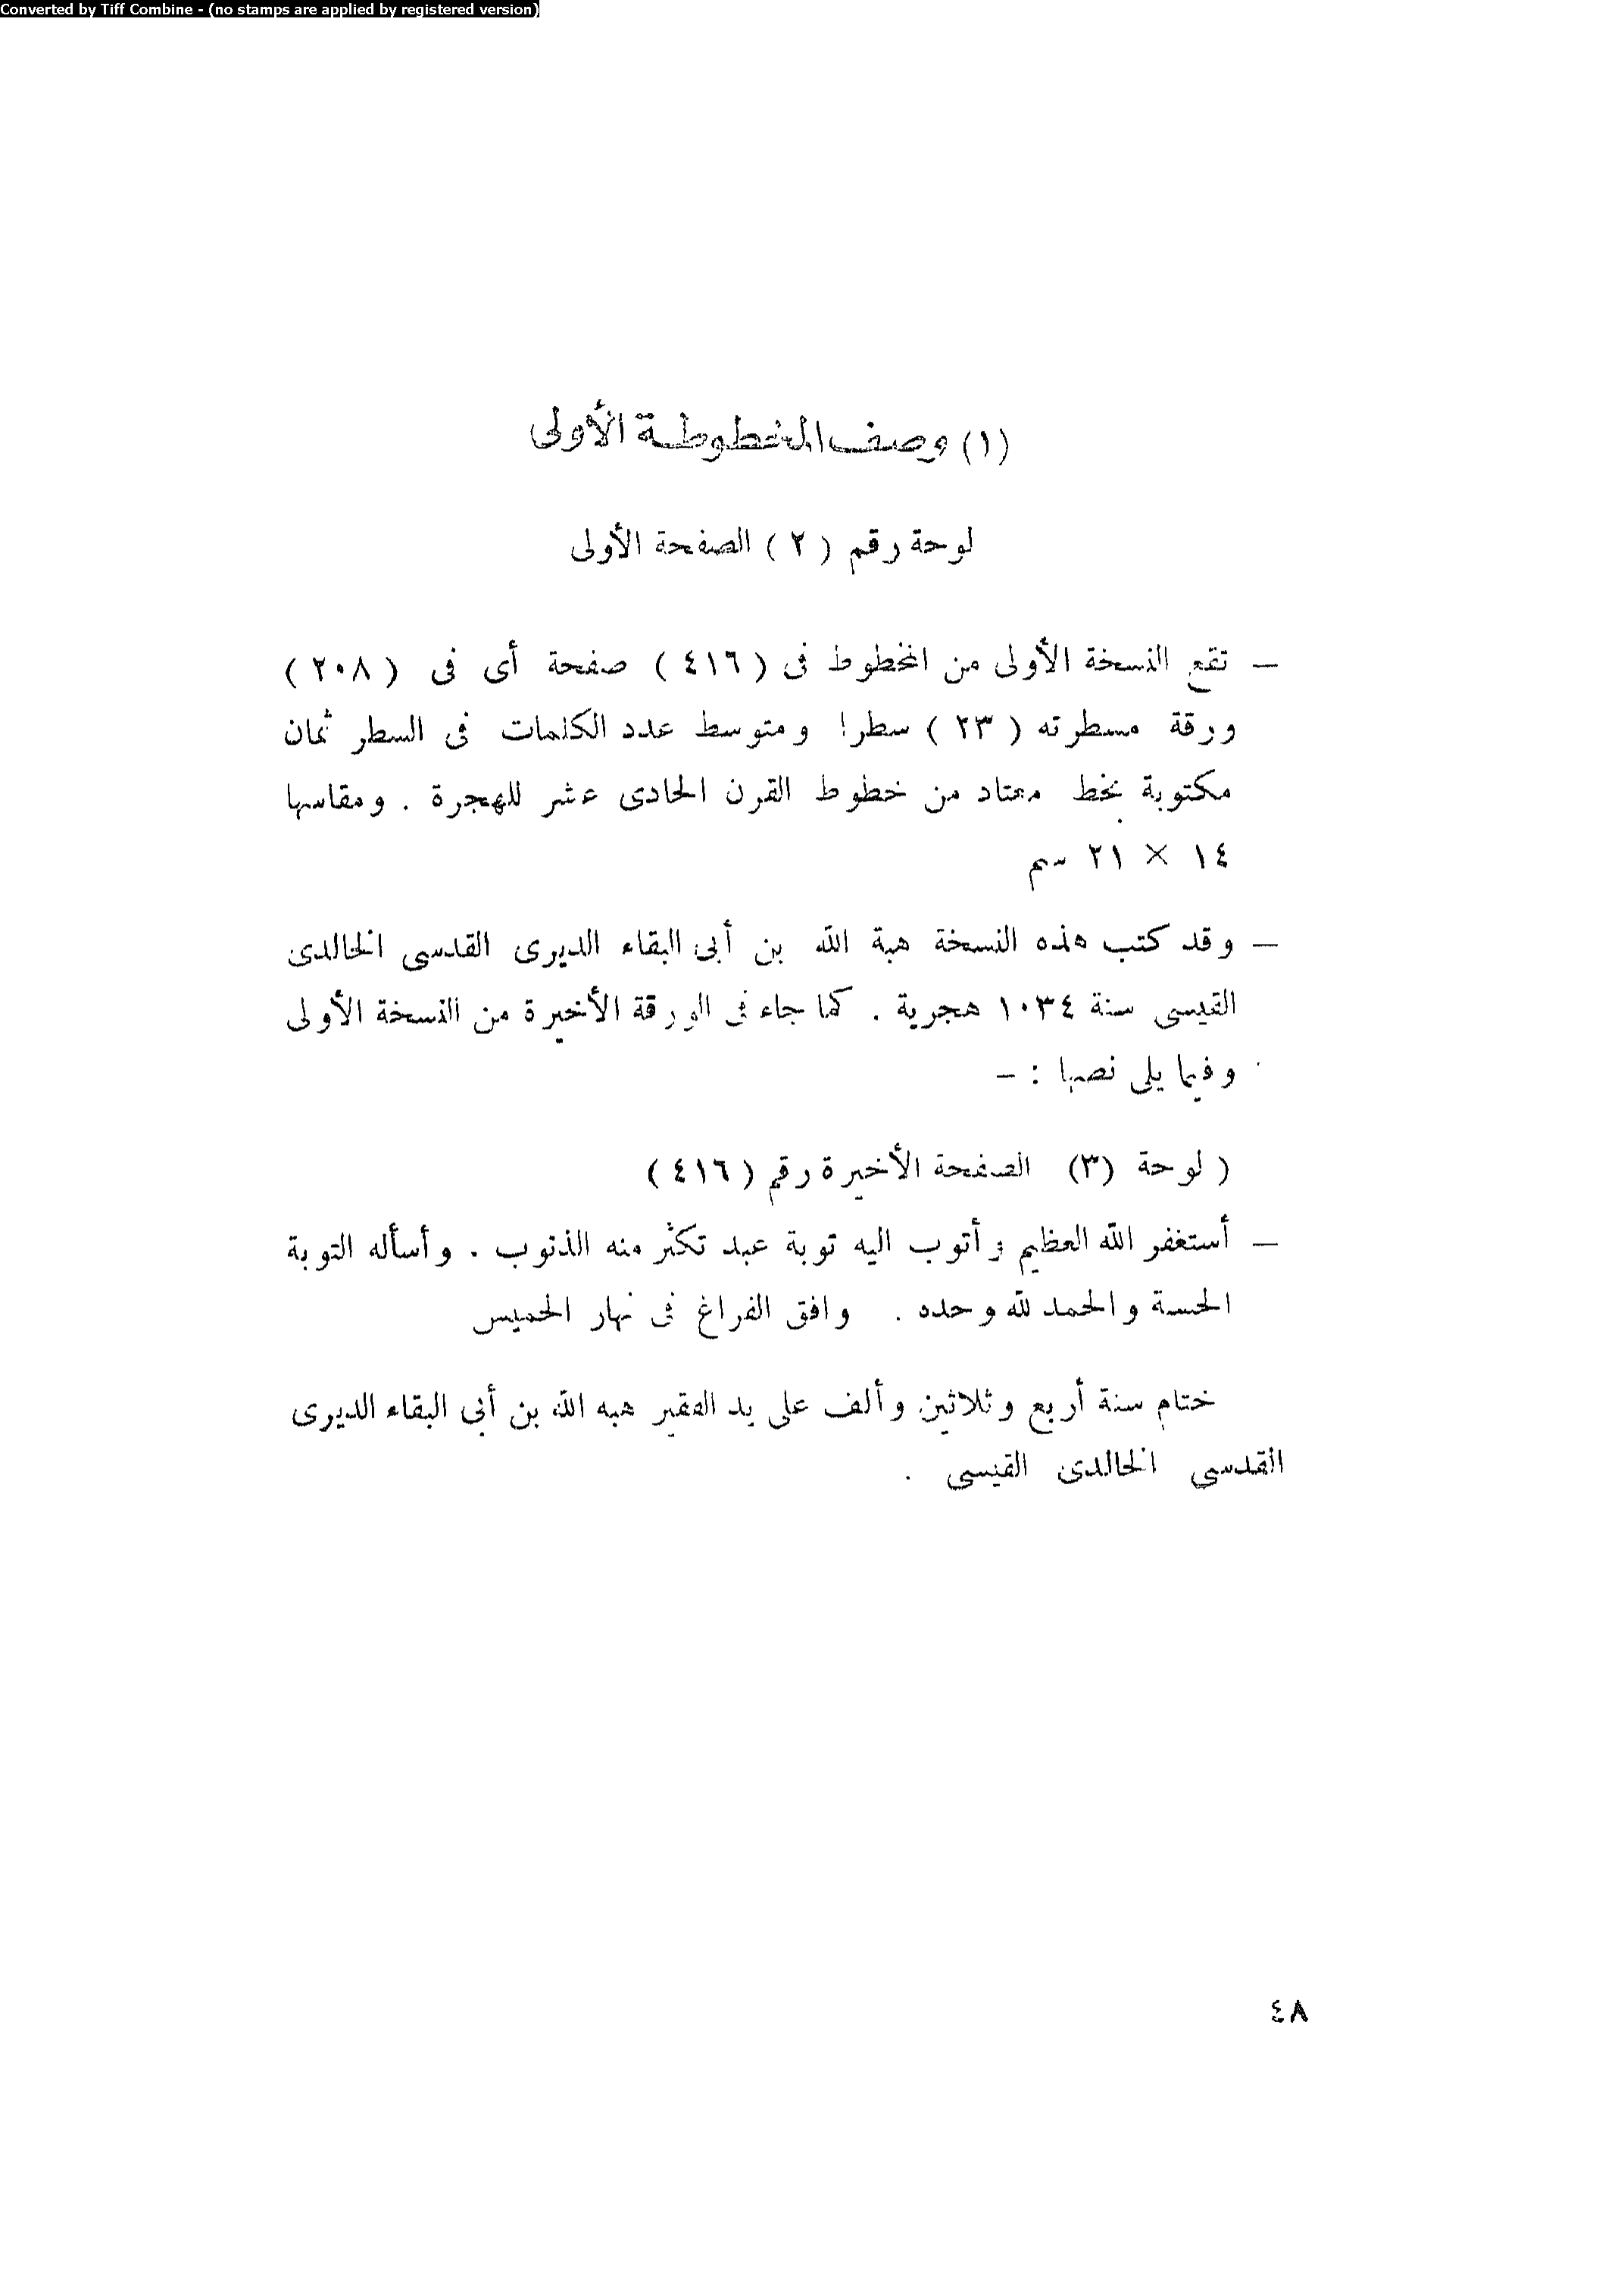 Converted by Tiff Combine - (no stamps are applied by registered version)
(١) وصف المخطوطة الأولى
لوحة رقم ( ٢ ) الصفحة الأولى
— تقع النسخة الأولى من المخطوط فى ( ٤١٦ ) صفحة أى فى ( ٢٠٨ )
ورقة مسطرته ( ٢٣ ) سطرا ومتوسط عدد الكلمات فى السطر ثمان
مكتوبة بخط معتاد من خطوط القرن الحادى عشر للهجرة . ومقاسها
١٤ × ٢١ سم
— وقد كتب هذه النسخة هبة الله بن أبى البقاء الديرى القدسى الخالدى
القيسى سنة ١٠٣٤ هجرية . كما جاء فى الورقة الأخيرة من النسخة الأولى
وفيما يلى نصها : —
( لوحة (٣) الصفحة الأخيرة رقم ( ٤١٦ )
— أستغفر الله العظيم وأتوب اليه توبة عبد تكثر منه الذنوب . وأسأله التوبة
الحسة والحمد لله وحده . وافق الفراغ فى نهار الخميس
ختام سنة أربع وثلاثين وألف على يد الفقير هبه الله بن أبى البقاء الديرى
القدسى الخالدى القيسى .
٤٨